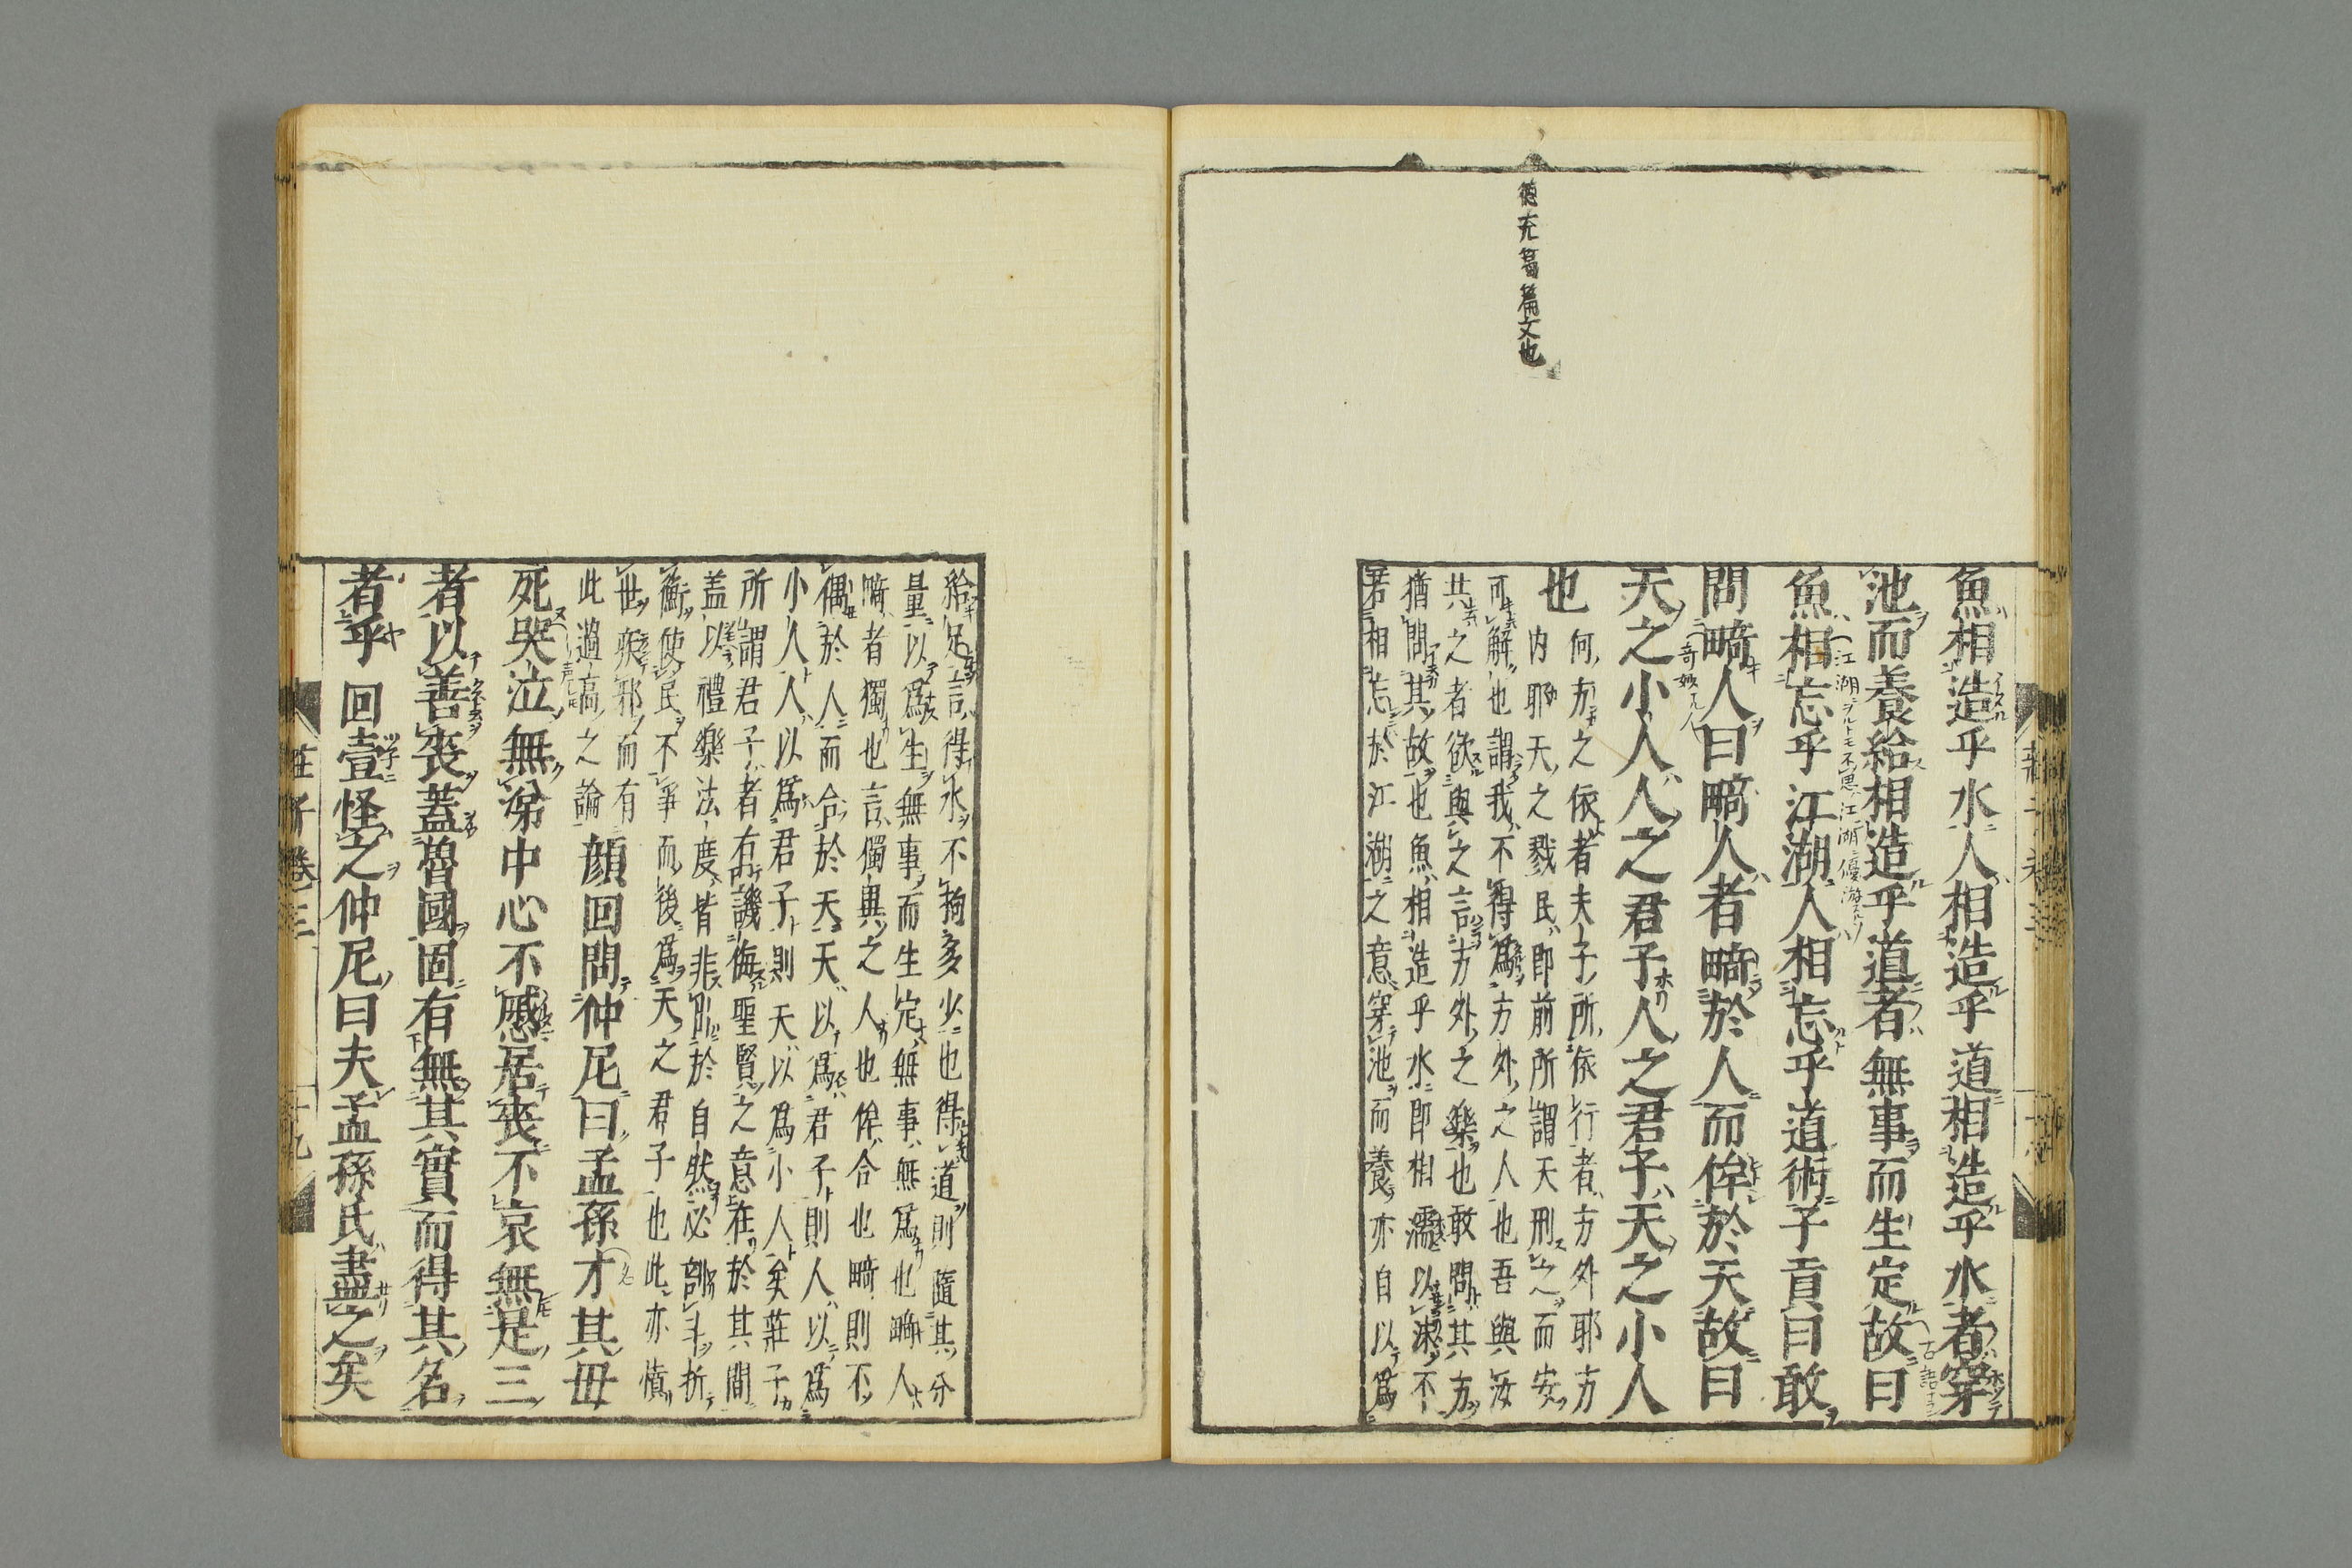 德充符篇文也
魚相造乎水人相造乎道相造乎水者穿
池而養給相造乎道者無事而生定故曰
魚相忘乎江湖人相忘乎道術子貢曰敢
問畸人曰畸人者畸於人而侔於天故曰
天之小人人之君子人之君子天之小人
也
何方之依者夫子所依行者方外耶方
内耶天之戮民即前所謂天刑之而安
可解也謂我不得爲方外之人也吾與汝
共之者欲與之言方外之樂也敢問其方
猶問其故也魚相造乎水即相濡以沫不
若相忘於江湖之意穿池而養亦自以爲
給足言得水不拘多少也得道則隨其分
量以爲生無事而生定無事無爲也畸人
畸者獨也言獨異之人也侔合也畸則不
偶於人而合於天天以爲君子則人以爲
小人人以爲君子則天以爲小人矣莊子
所謂君子者有譏侮聖賢之意在於其間
蓋以禮樂法度皆非出於自然必剖斗折
衡使民不爭而後爲天之君子也此亦憤
世疾邪而有
此過高之論
顔回問仲尼曰孟孫才其毋
死哭泣無涕中心不慼居喪不哀無是三
者以善喪蓋魯國固有無其實而得其名
者乎回壹怪之仲尼曰夫孟孫氏盡之矣
莊子卷三
十九